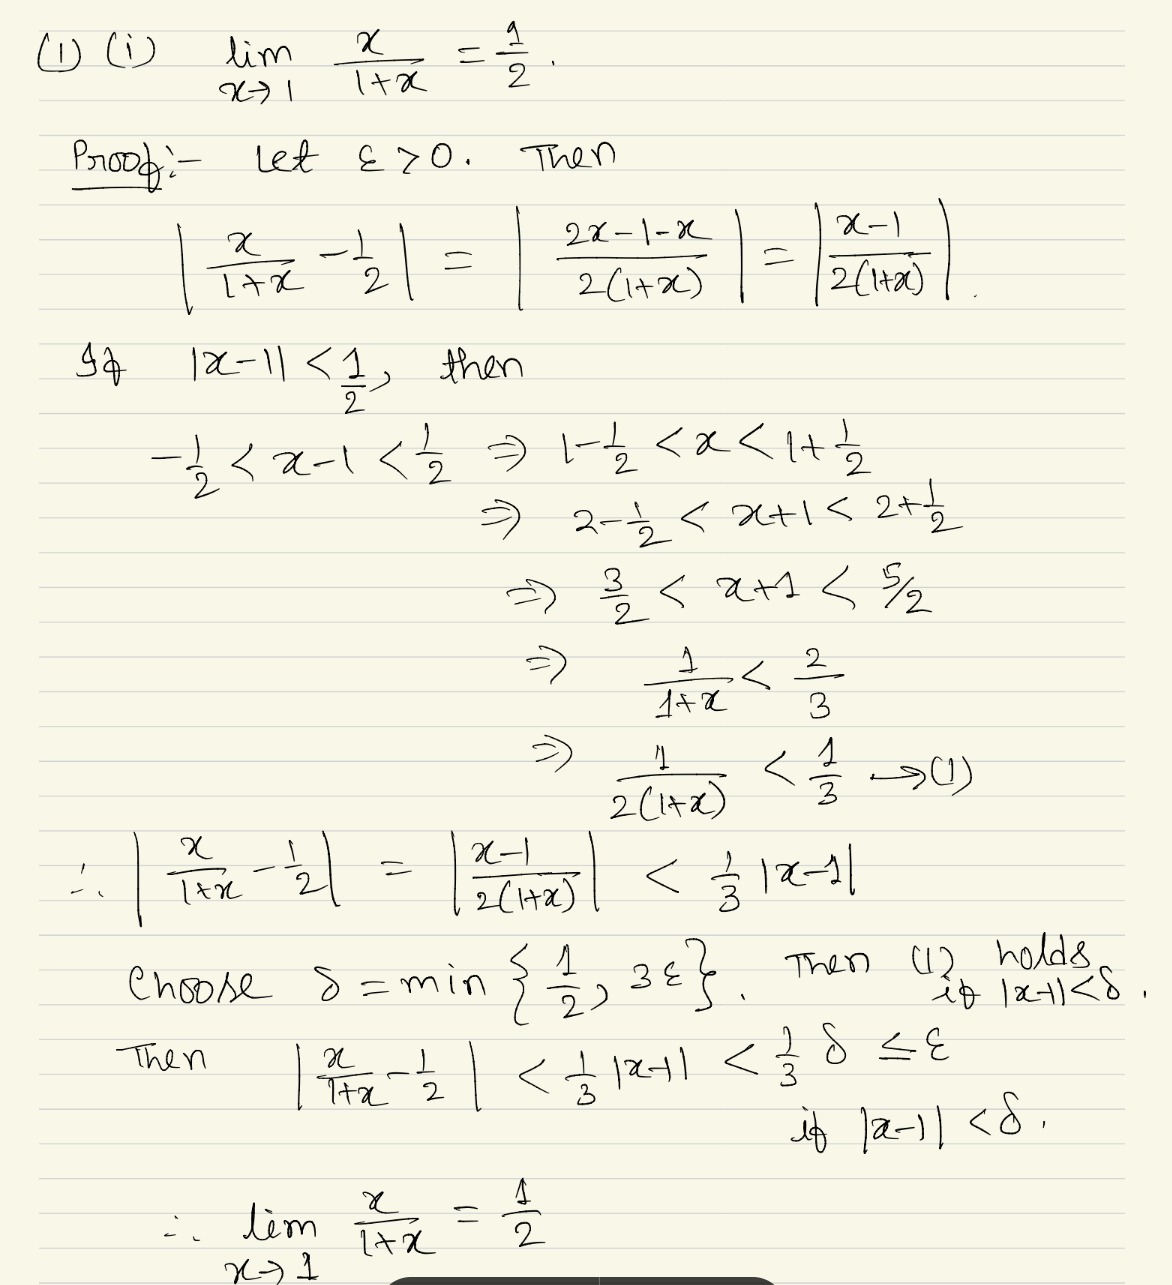 (1) (i) lim x→1 x/(1+x) = 1/2.
Proof:- Let ε > 0. Then
|x/(1+x) - 1/2| = |(2x-1-x)/(2(1+x))| = |(x-1)/(2(1+x))|.
If |x-1| < 1/2, then
-1/2 < x-1 < 1/2 ⇒ 1-1/2 < x < 1+1/2
⇒ 2-1/2 < x+1 < 2+1/2
⇒ 3/2 < x+1 < 5/2
⇒ 1/(1+x) < 2/3
⇒ 1/(2(1+x)) < 1/3 → (1)
∴ |x/(1+x) - 1/2| = |(x-1)/(2(1+x))| < 1/3 |x-1|
Choose δ = min {1/2, 3ε}. Then (1) holds
if |x-1| < δ.
Then |x/(1+x) - 1/2| < 1/3 |x-1| < 1/3 δ ≤ ε
if |x-1| < δ.
∴ lim x→1 x/(1+x) = 1/2